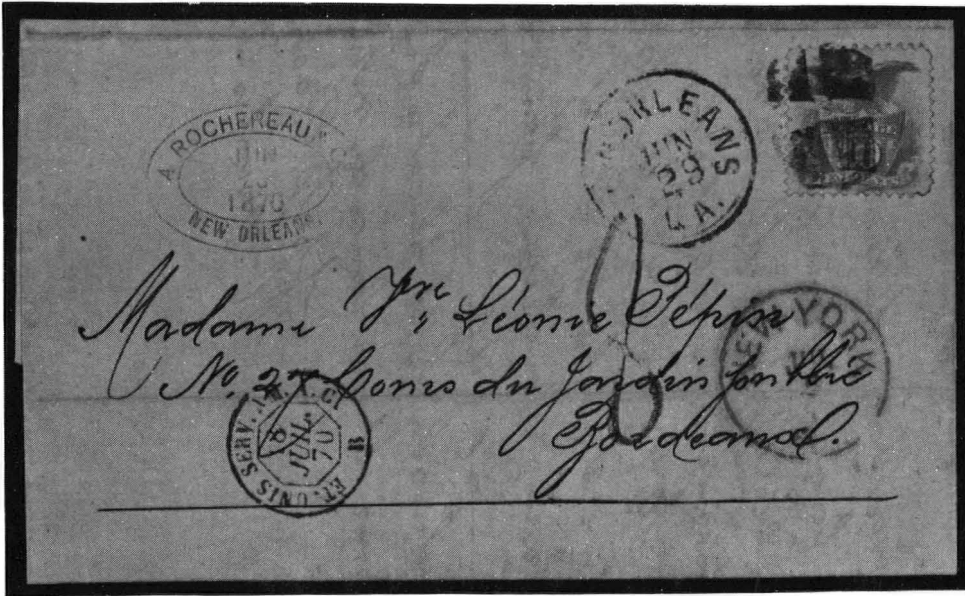 A. ROCHEREAU & Co
JUN
1870
NEW ORLEANS
N. ORLEANS
JUN
28
LA.
8
Madame Vve Léonie Pépin
No. 27 Cours du Jardin public
Bordeaux.
NEW YORK
ET. UNIS SERV. B
8
JUIL.
70